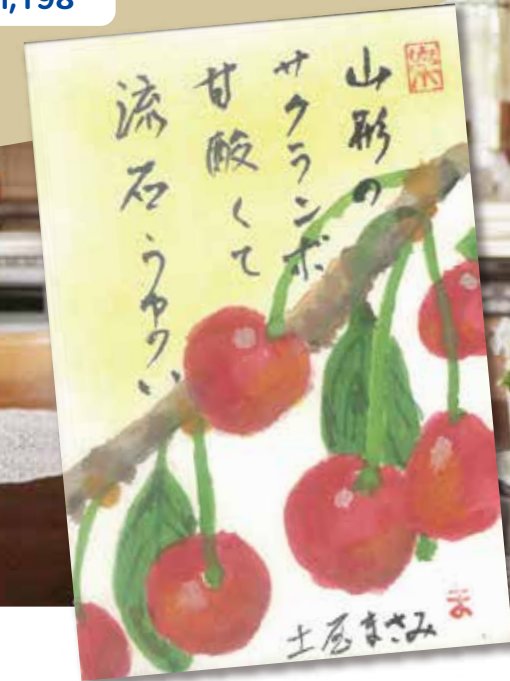 ,198
山形の
サクランボ
甘酸くて
流石
土屋まさみ
ま